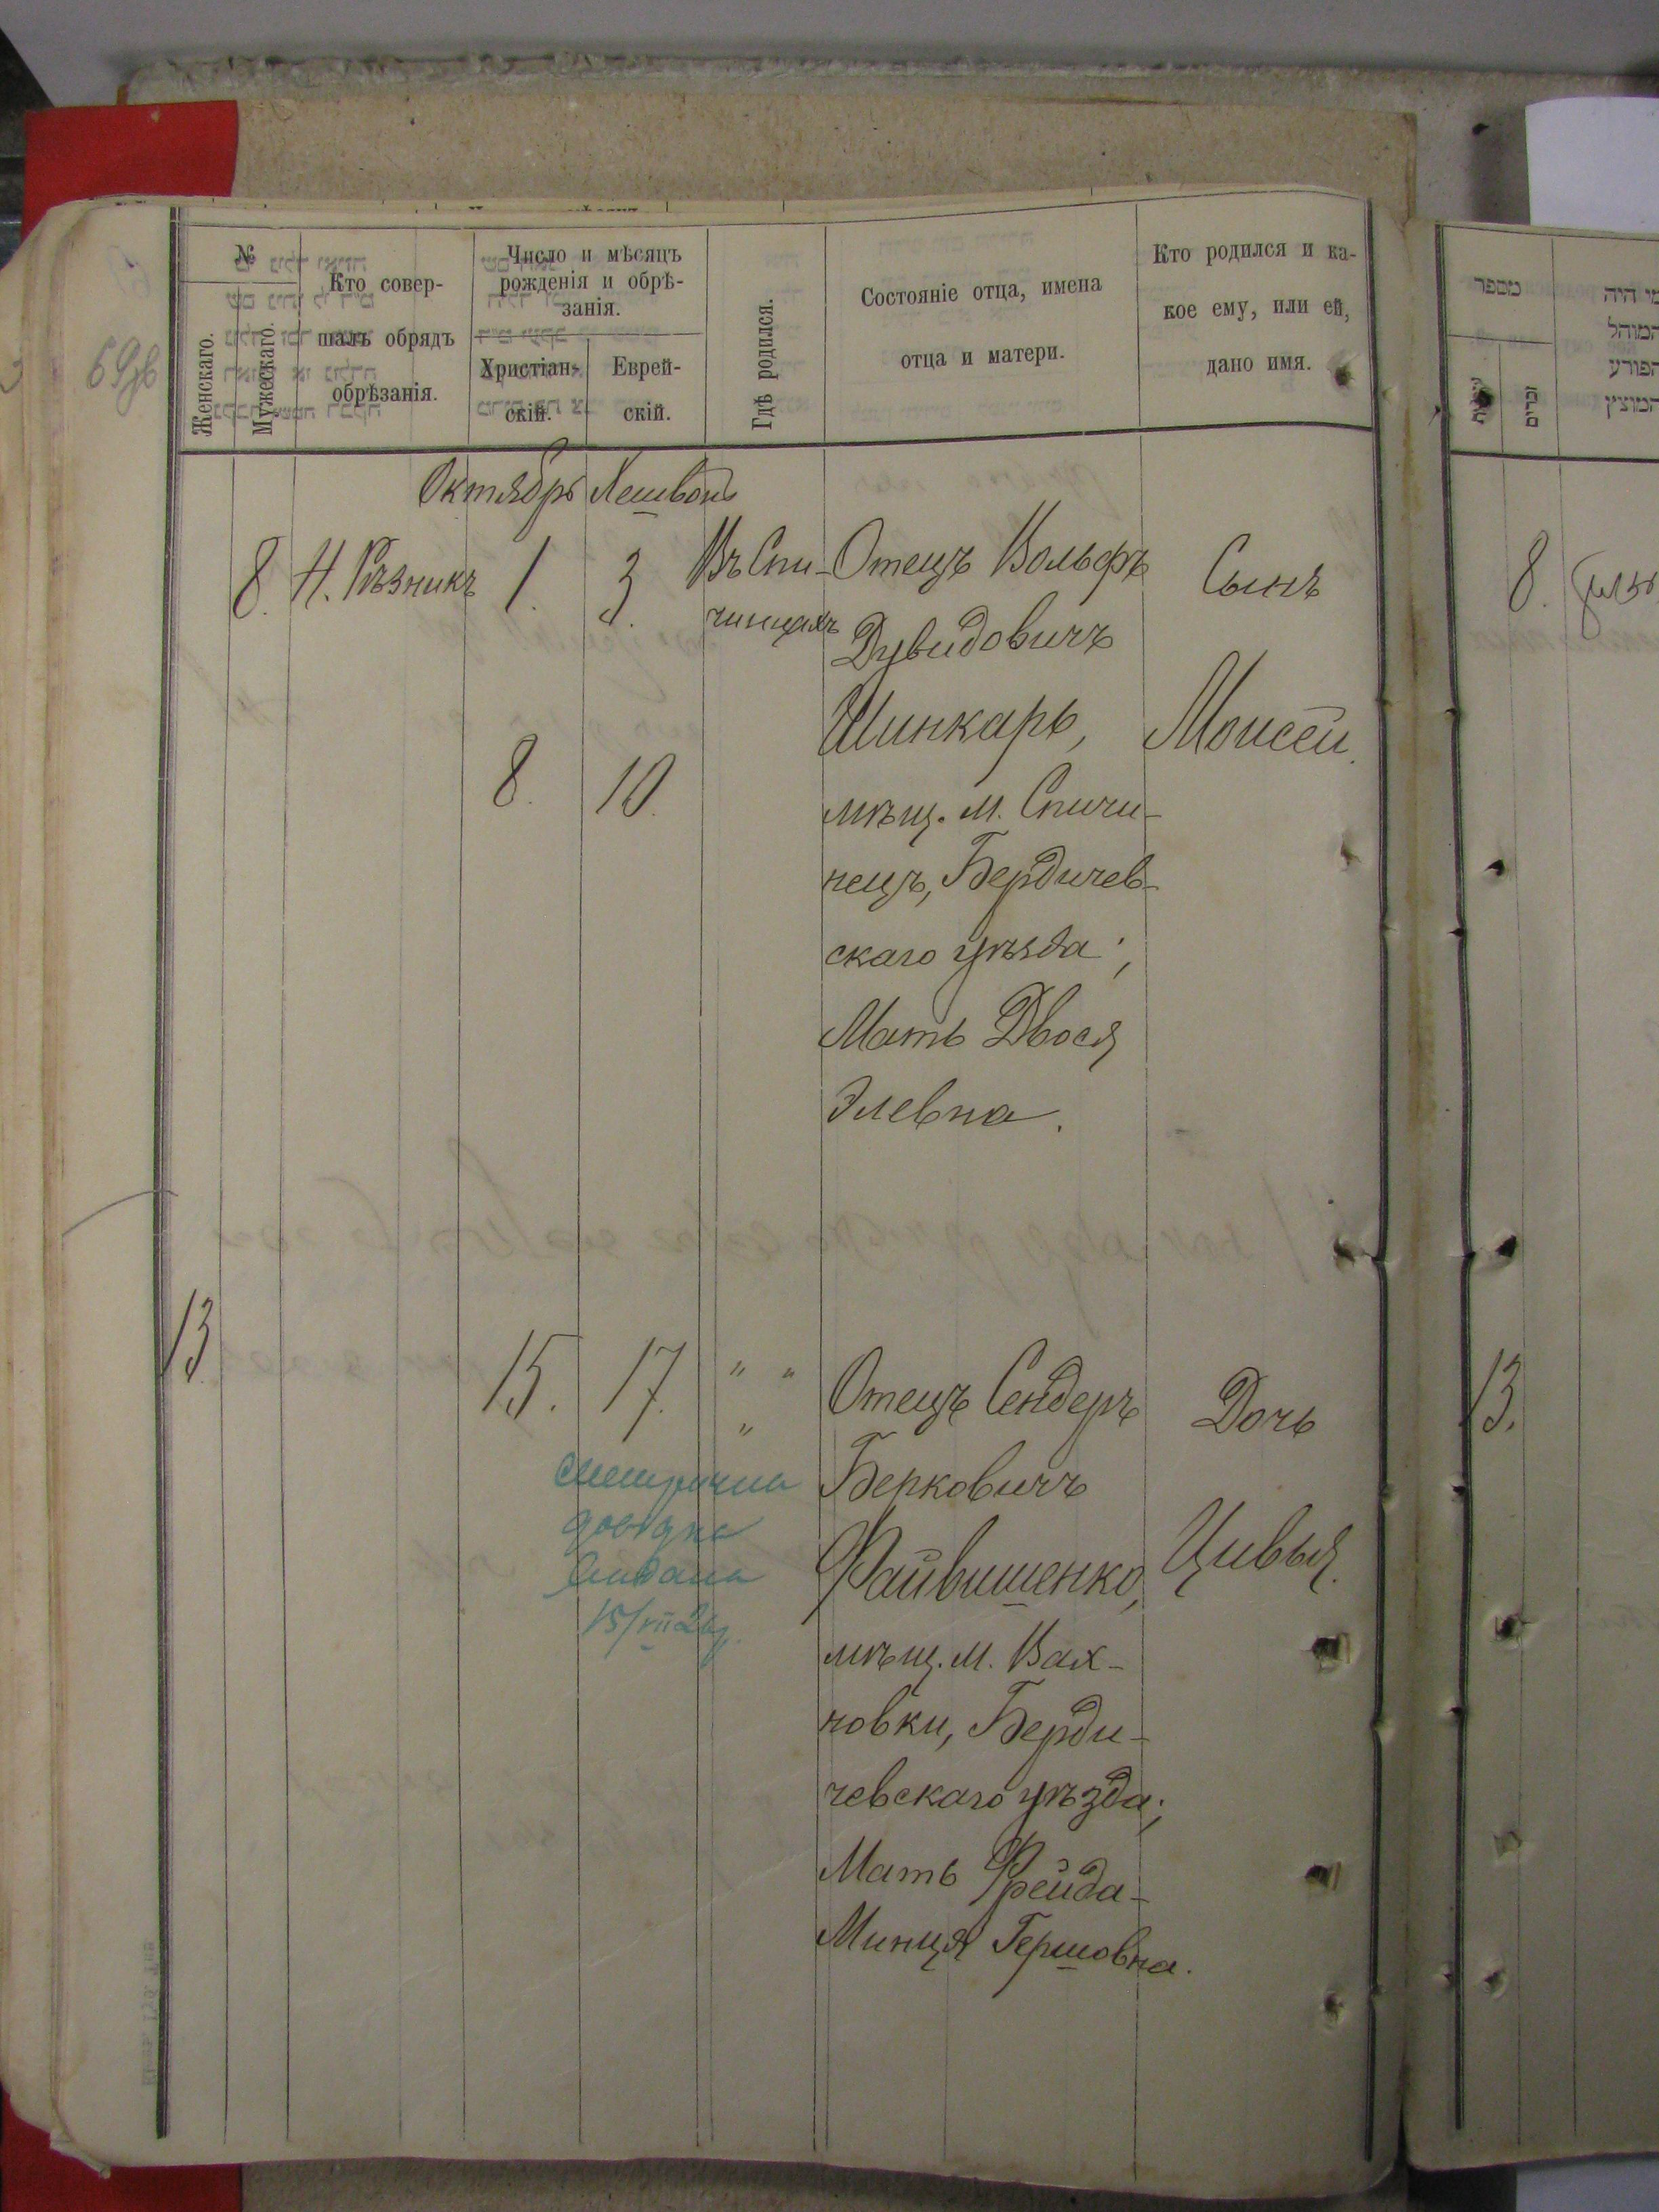 69 зв
№
Женскаго.
Мужескаго.
Кто совер-
шалъ обрядъ
обрѣзанія.
Число и мѣсяцъ
рожденія и обрѣ-
занія.
Христіан-
скій.
Еврей-
скій.
Гдѣ родился.
Состояніе отца, имена
отца и матери.
Кто родился и ка-
кое ему, или ей,
дано имя.
מספר
מי היה
המוהל
הפורע
המוצץ
זכרים
Октябрь Хешвонъ
8. Н. Рѣзникъ 1. 3. Въ Спи-
чинцахъ
8. 10.
Отецъ Вольфъ
Дувидовичъ
Шинкарь,
мѣщ. м. Спичи-
нецъ, Бердичев-
скаго уѣзда;
Мать Двося
Элевна.
Сынъ
Моисей.
8.
13 15. 17. " "
"
Отецъ Сендеръ
Берковичъ
Файвишенко,
мѣщ. м. Вах-
новки, Берди-
чевскаго уѣзда;
Мать Фрейда-
Минця Гершовна.
Дочь
Цивья.
довідка
видана
15/VII 26р.
13.